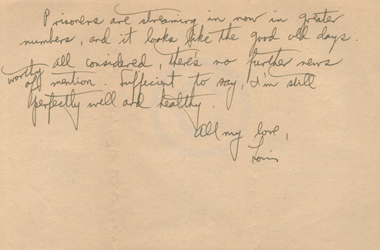 Prisoners are streaming in now in greater
numbers, and it looks like the good old days.
all considered, there's no further news
worthy of mention. Sufficient to say, I'm still
perfectly well and healthy.
All my love,
Louis